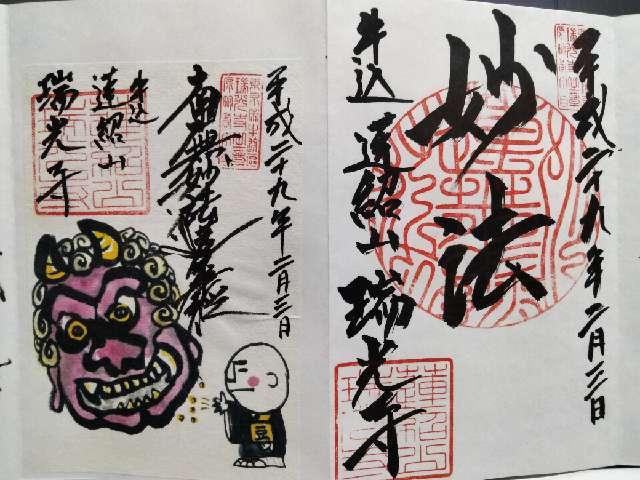 平成二十九年二月三日
南無妙法蓮華経
牛込
蓮紹山
瑞光寺
豆
平成二十九年二月三日
妙法
牛込 蓮紹山 瑞光寺